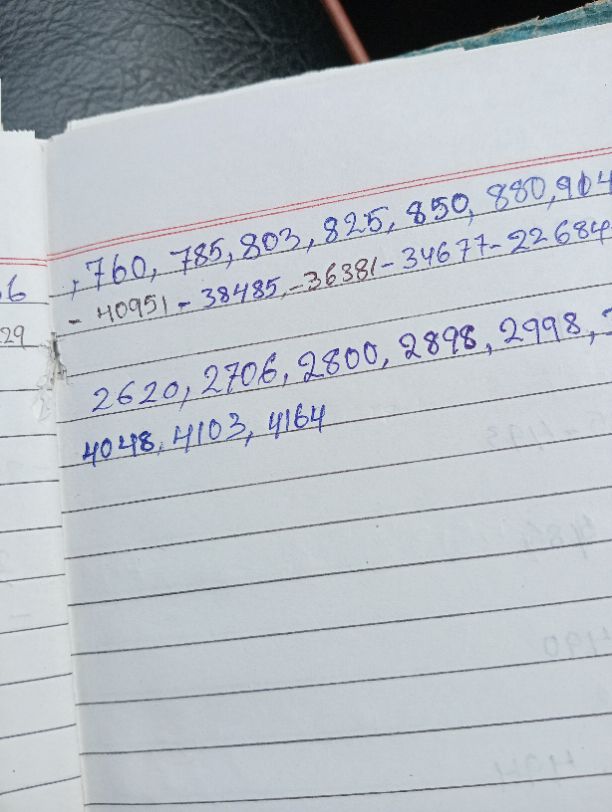 , 760, 785, 803, 825, 850, 880, 904
- 40951 - 38485, - 36381 - 34677 - 22684
29
2620, 2706, 2800, 2898, 2998,
4048, 4103, 4164